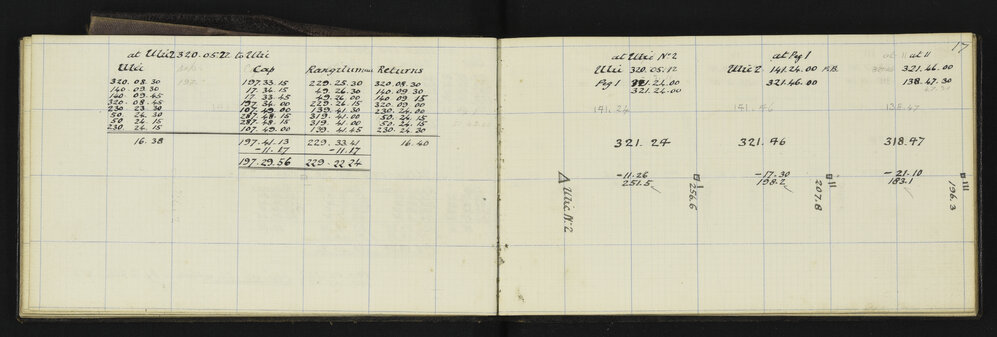 at Ulic 2 320.05.12 to Ulic
Ulic Cap Returns
320.08.30 197.33.15 229.25.30 320.08.30
140.09.30 17.34.15 49.26.30 140.09.30
140.09.45 17.33.45 49.26.00 140.09.15
320.08.45 197.34.00 229.26.15 320.09.00
230.23.30 107.49.00 139.41.30 230.24.00
50.24.30 287.48.15 319.41.00 50.24.15
50.24.15 287.48.15 319.41.00 50.24.15
230.24.15 107.49.00 139.41.45 230.24.30
16.38 197.41.13 229.33.41 16.40
-11.17 -11.17
197.29.56 229.22.24
17
at Ulic No 2 at Peg 1 at II
Ulic 320.05.12 Ulic 2 141.24.00 321.46.00
Peg 1 321.24.00 321.46.00 138.47.30
321.24.00
141.24 141.46 138.47
321.24 321.46 318.47
-11.26 -17.30 -21.10
251.5 198.2 183.1
Ulic No 2
I 256.6
II 207.8
III 196.3